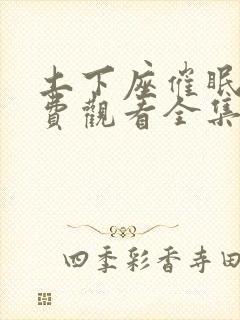 土下座催眠
費觀看全集
四季彩香寺田